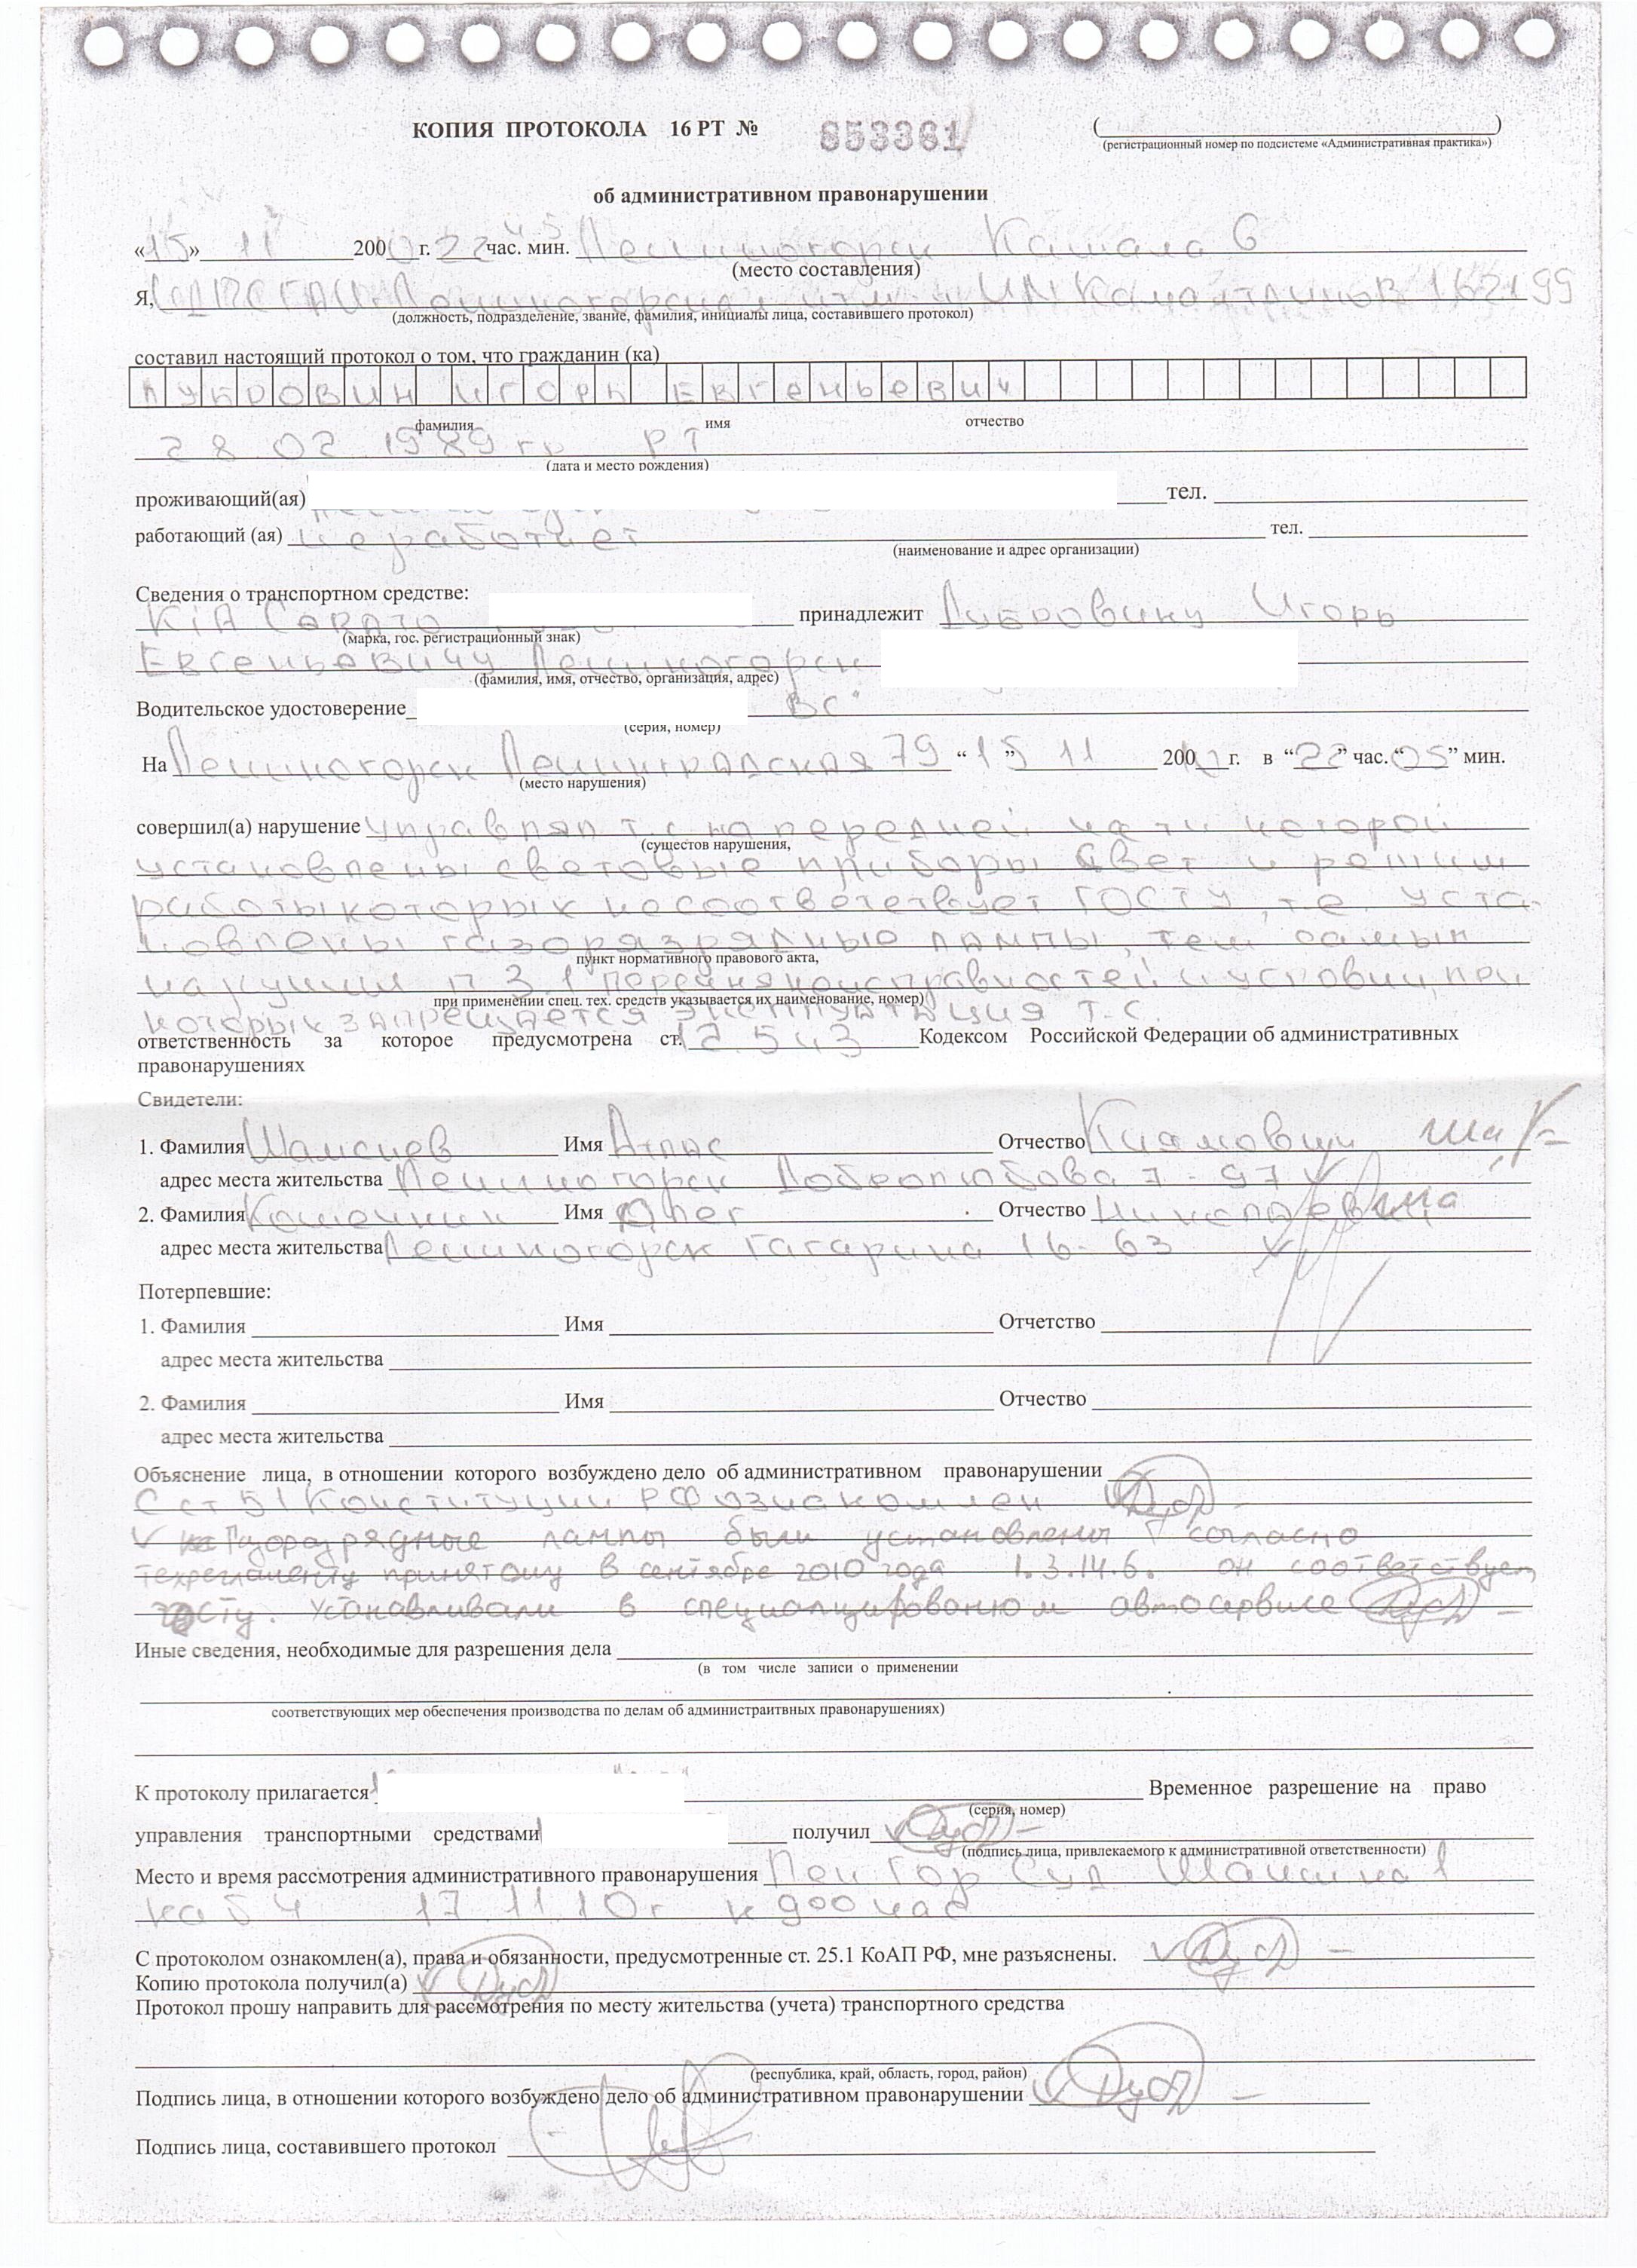 КОПИЯ ПРОТОКОЛА 16 РТ № 853361 (
)
(регистрационный номер по подсистеме «Административная практика»)
об административном правонарушении
«15» 11 200 г. 22 час. 45 мин. Лениногорск Кашала 6
(место составления)
Я, ИДПС ГАИ Лениногорск 162199
(должность, подразделение, звание, фамилия, инициалы лица, составившего протокол)
составил настоящий протокол о том, что гражданин (ка)
ДУБРОВИН ИГОРЬ ЕВГЕНЬЕВИЧ
фамилия имя отчество
28 02 1989 гр РТ
(дата и место рождения)
проживающий(ая) тел.
работающий (ая) не работает тел.
(наименование и адрес организации)
Сведения о транспортном средстве:
KIA CERATO принадлежит Дубровину Игорь
(марка, гос. регистрационный знак)
Евгеньевичу Лениногорск
(фамилия, имя, отчество, организация, адрес)
Водительское удостоверение ВС
(серия, номер)
На Лениногорск Ленинградская 79 “15” 11 200 г. в “22” час. “05” мин.
(место нарушения)
совершил(а) нарушение управлял т.с на передней части которой
(существо нарушения,
установлены световые приборы цвет и режим
работы которых не соответствует ГОСТУ, т.е. уста-
новлены газоразрядные лампы, тем самым
пункт нормативного правового акта,
нарушил п 3.1 Перечня неисправностей и условий, при
при применении спец. тех. средств указывается их наименование, номер)
которых запрещается эксплуатация т.с.
ответственность за которое предусмотрена ст. 12.5 ч3 Кодексом Российской Федерации об административных
правонарушениях
Свидетели:
1. Фамилия Шамсиев Имя Атлас Отчество Киямович
адрес места жительства Лениногорск Добролюбова 7-97
2. Фамилия Имя Олег Отчество Николаевич
адрес места жительства Лениногорск Гагарина 16-63
Потерпевшие:
1. Фамилия Имя Отчетство
адрес места жительства
2. Фамилия Имя Отчество
адрес места жительства
Объяснение лица, в отношении которого возбуждено дело об административном правонарушении
С ст 51 Конституции РФ ознакомлен
Газоразрядные лампы были установлены согласно
техрегламенту принятому в сентябре 2010 года 1.3.14.6. он соответствует
госту. Устанавливали в специализированом автосервисе
Иные сведения, необходимые для разрешения дела
(в том числе записи о применении
соответствующих мер обеспечения производства по делам об админстраитвных правонарушениях)
К протоколу прилагается Временное разрешение на право
(серия, номер)
управления транспортными средствами получил
(подпись лица, привлекаемого к административной ответственности)
Место и время рассмотрения административного правонарушения Лен Гор Суд Шашина 1
каб 4 17 11 10г к 900 час
С протоколом ознакомлен(а), права и обязанности, предусмотренные ст. 25.1 КоАП РФ, мне разъяснены.
Копию протокола получил(а)
Протокол прошу направить для рассмотрения по месту жительства (учета) транспортного средства
(республика, край, область, город, район)
Подпись лица, в отношении которого возбуждено дело об административном правонарушении
Подпись лица, составившего протокол